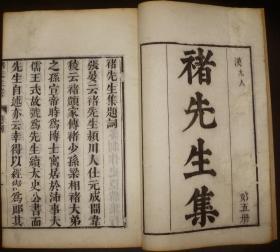 漢九人
褚先生集
第五册
褚先生集題詞
張晏云褚先生潁川人仕元成間韋
稜云褚顗家傳褚少孫梁相褚大弟
之孫宣帝時爲博士寓居於沛事大
儒王式故號爲先生續太史公書而
先生自述亦云幸得以經術爲郎其